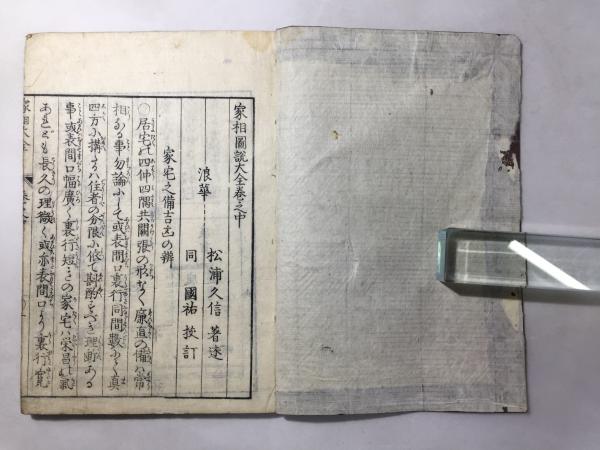 家相圖説大全巻之中
浪華 松浦久信 著述
同 國祐 挍訂
家宅之備吉凶の辨
○居宅は四仲四隅共闕張の形なく廉直の備ハ常
相なる事勿論にして或表間口裏行同間數にて真
四方に構るハ住者の分限に依て斟酌すべき理斷ある
事或表間口幅廣く裏行短きの家宅ハ栄昌の氣
あれども長久の理徴く或亦表間口より裏行寛
家相大全